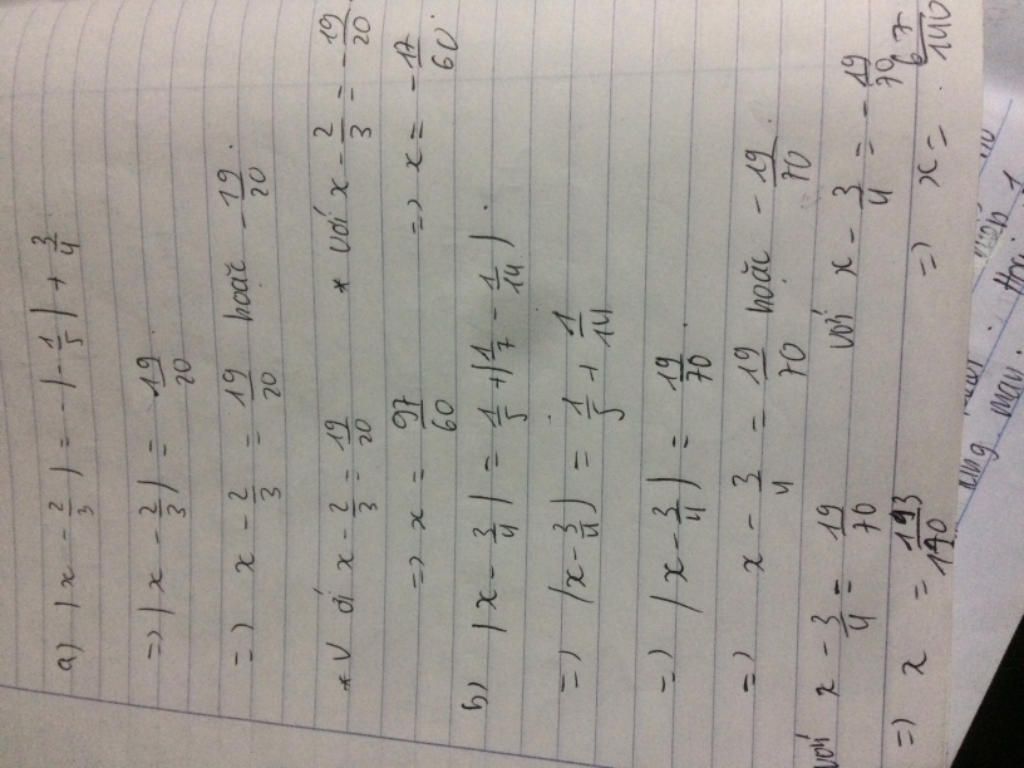 a) |x - 2/3| = - |-1/5| + 3/4
=> |x - 2/3| = 19/20
=> x - 2/3 = 19/20 hoặc - 19/20.
* Với x - 2/3 = 19/20 * với x - 2/3 = - 19/20
=> x = 97/60 => x = - 17/60.
b) |x - 3/4| = 1/5 + |1/7 - 1/14|.
=> |x - 3/4| = 1/5 + 1/14
=> |x - 3/4| = 19/70.
=> x - 3/4 = 19/70 hoặc - 19/70.
với x - 3/4 = 19/70 với x - 3/4 = - 19/70
=> x = 193/140 => x = 67/140